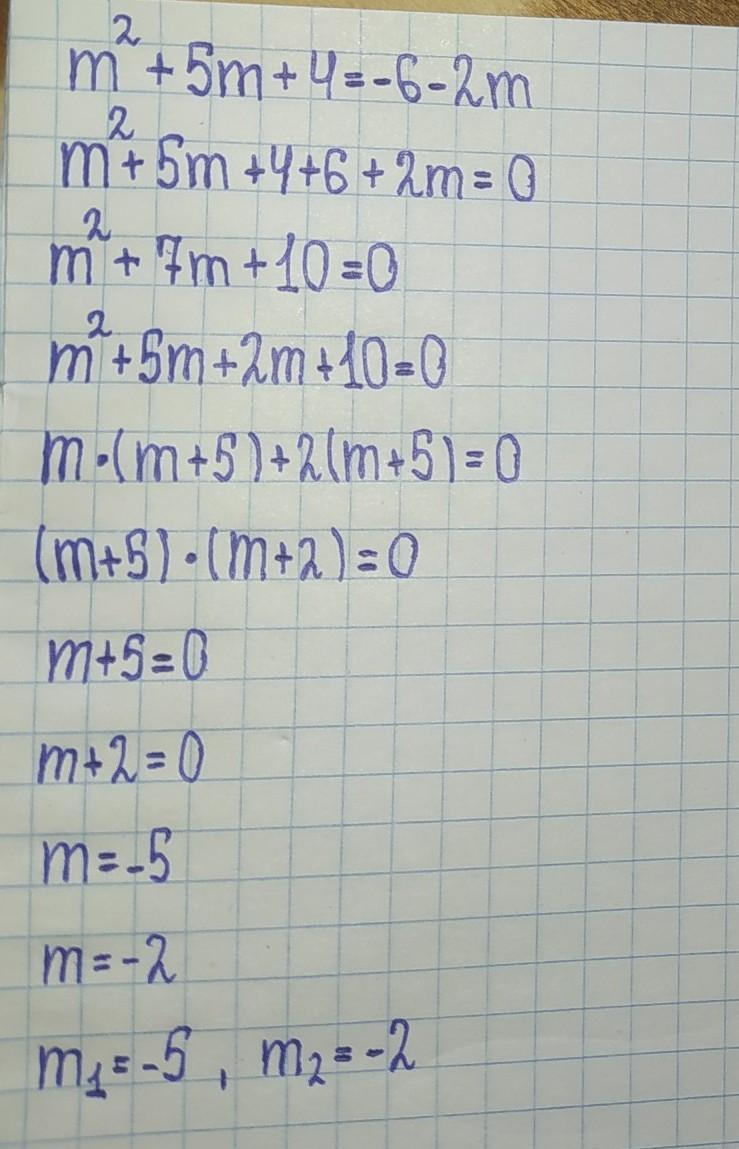 m² + 5m + 4 = -6 - 2m
m² + 5m + 4 + 6 + 2m = 0
m² + 7m + 10 = 0
m² + 5m + 2m + 10 = 0
m · (m + 5) + 2(m + 5) = 0
(m + 5) · (m + 2) = 0
m + 5 = 0
m + 2 = 0
m = -5
m = -2
m₁ = -5 , m₂ = -2